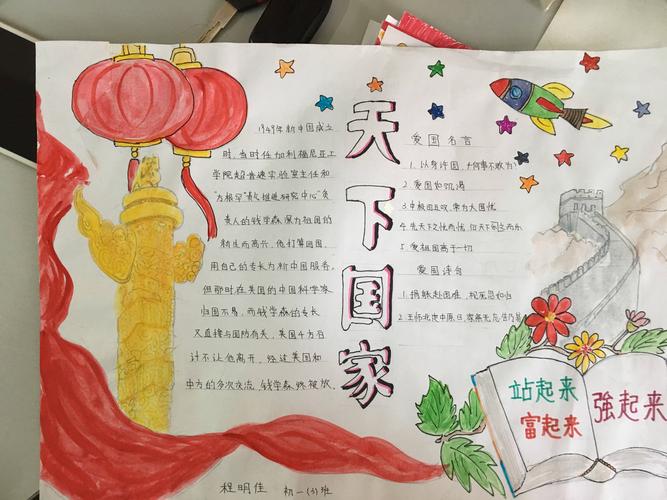 天下国家
1949年新中国成立
时,当时任加利福尼亚工
学院超音速实验室主任和
责人的钱学森深为祖国的
新生而高兴,他打算回国,
用自己的专长为新中国服务,
但那时在美国的中国科学家
归国不易,而钱学森的专长
又直接与国防有关,美国千方百
计不让他离开,经过美国和
中方的多次交流,钱学森终被放.
爱国名言
1.以身许国,何事不敢为?
2.爱国如饥渴
3.中夜四五叹,常为大国忧
4.先天下之忧而忧,后天下之乐而乐
5.爱祖国高于一切
爱国诗句
1.捐躯赴国难,视死忽如归
2.王师北定中原日,家祭无忘告乃翁
站起来
富起来
強起来
程明佳 初一(3)班